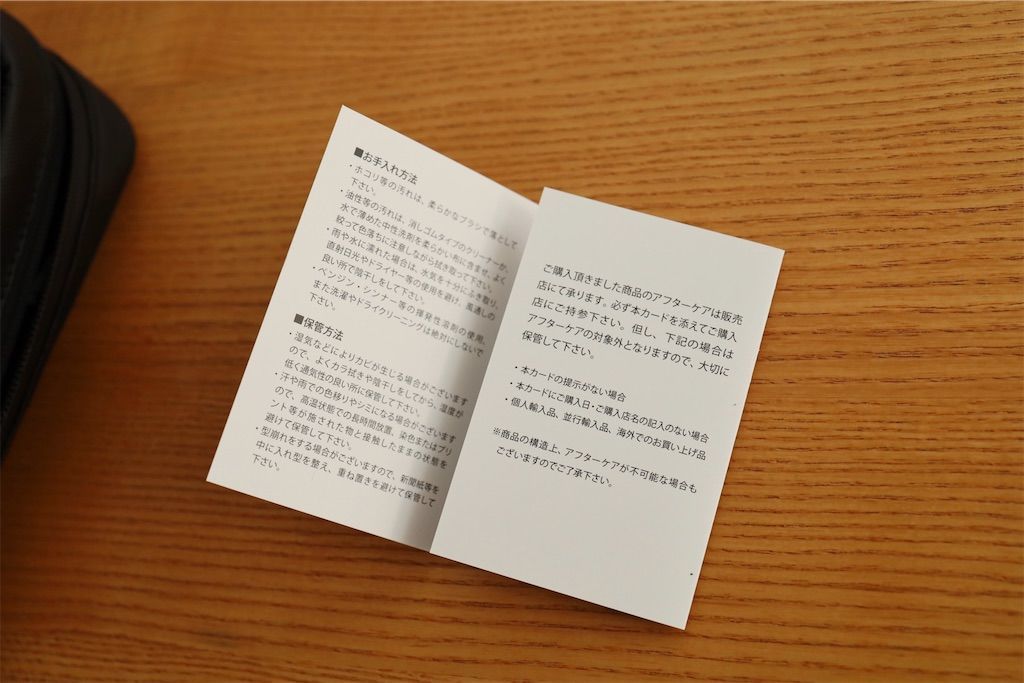 ■お手入れ方法
・ホコリ等の汚れは、柔らかなブラシで落として
下さい。
・油性等の汚れは、消しゴムタイプのクリーナーか、
水で薄めた中性洗剤を柔らかい布に含ませ、よく
絞って色落ちに注意しながら拭き取って下さい。
・雨や水に濡れた場合は、水気を十分にふき取り、
直射日光やドライヤー等の使用を避け、風通しの
良い所で陰干しをして下さい。
・ベンジン・シンナー等の揮発性溶剤の使用、
また洗濯やドライクリーニングは絶対にしないで
下さい。
■保管方法
・湿気などによりカビが生じる場合がございます
ので、よくカラ拭きや陰干しをしてから、湿度が
低く通気性の良い所に保管して下さい。
・汗や雨での色移りやシミになる場合がございます
ので、高温状態での長時間放置、染色またはプリ
ント等が施された物と接触したままの状態を
避けて保管して下さい。
・型崩れをする場合がございますので、新聞紙等を
中に入れ型を整え、重ね置きを避けて保管して
下さい。
ご購入頂きました商品のアフターケアは販売
店にて承ります。必ず本カードを添えてご購入
店にご持参下さい。但し、下記の場合は
アフターケアの対象外となりますので、大切に
保管して下さい。
・本カードの提示がない場合
・本カードにご購入日・ご購入店名の記入のない場合
・個人輸入品、並行輸入品、海外でのお買い上げ品
※商品の構造上、アフターケアが不可能な場合も
ございますのでご了承下さい。